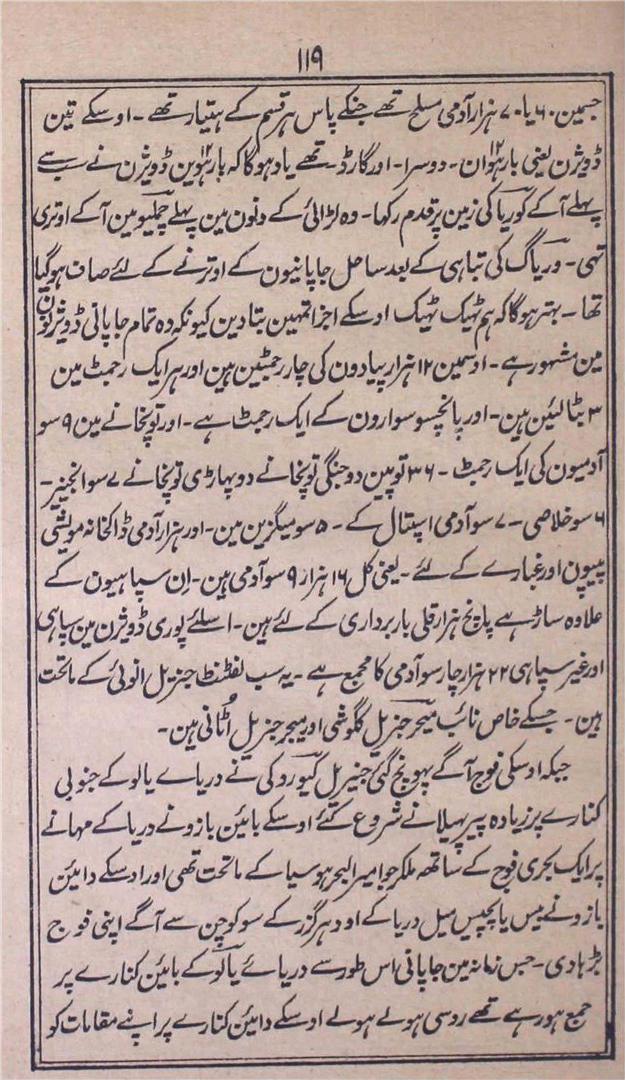 ۱۱۹
جسمین ۶۰ یا ۷۰ ہزار آدمی مسلح تھے جنکے پاس ہر قسم کے ہتیار تھے ۔ اوسکے تین
ڈویژن یعنی بارہوان ۔ دوسرا ۔ اور گارڈ ۔ تھے یاد ہوگا کہ بارہوین ڈویژن نے سب سے
پہلے آکے کوریا کی زمین پر قدم رکہا ۔ وہ لڑائی کے دنون مین پہلے چملپو مین آکے اوتری
تہی ۔ وریاگ کی تباہی کے بعد ساحل جاپانیون کے اوترنے کے لئے صاف ہوگیا
تھا ۔ بہتر ہوگا کہ ہم ٹہیک ٹہیک اوسکے اجزا تمہین بتا دین کیونکہ وہ تمام جاپانی ڈویژنون
مین مشہور ہے ۔ اوسمین ۱۲ ہزار پیادون کی چار رجمٹین ہین اور ہر ایک رجمٹ مین
۳ بٹالئین ہین ۔ اور پانچسو سوارون کے ایک رجمٹ ہے ۔ اور توپخانے مین ۹ سو
آدمیون کی ایک رجمٹ ۔ ۳۶ توپین دو جنگی توپخانے دو پہاڑی توپخانے ۷ سو انجنیر ۔
۶ سو خلاصی ۔ ۷ سو آدمی اسپتال کے ۔ ۵ سو میگزین مین ۔ اور ہزار آدمی ڈاکخانہ مویشی
پیپون اور غبارے کے لئے ۔ یعنی کل ۱۶ ہزار ۹ سو آدمی ہین ۔ ان سپاہیون کے
علاوہ ساڑہے پانچ ہزار قلی باربرداری کے لئے ہین ۔ اسلئے پوری ڈویژن مین سپاہی
اور غیر سپاہی ۲۲ ہزار چار سو آدمی کا مجمع ہے ۔ یہ سب لفٹنٹ جنریل انوئی کے ماتحت
ہین ۔ جسکے خاص نائب میجر جنریل گگوشی اور میجر جنریل اُٹانی ہین ۔
جبکہ اوسکی فوج آگے پہونچ گئی جنریل کیوروکی نے دریاے یالو کے جنوبی
کنارے پر زیادہ پیر پہیلانے شروع کئے اوسکے بائین بازو نے دریا کے مہانے
پر ایک بحری فوج کے ساتھ ملکر جو امیرالبحر ہوسیا کے ماتحت تھی اور اوسکے دائین
بازو نے بیس یا پچیس میل دریا کے اودہر گزر کے سوکوچن سے آگے اپنی فوج
بڑہادی ۔ جس زمانہ مین جاپانی اس طور سے دریائے یالو کے بائین کنارے پر
جمع ہو رہے تھے روسی ہولے ہولے اوسکے دائین کنارے پر اپنے مقامات کو